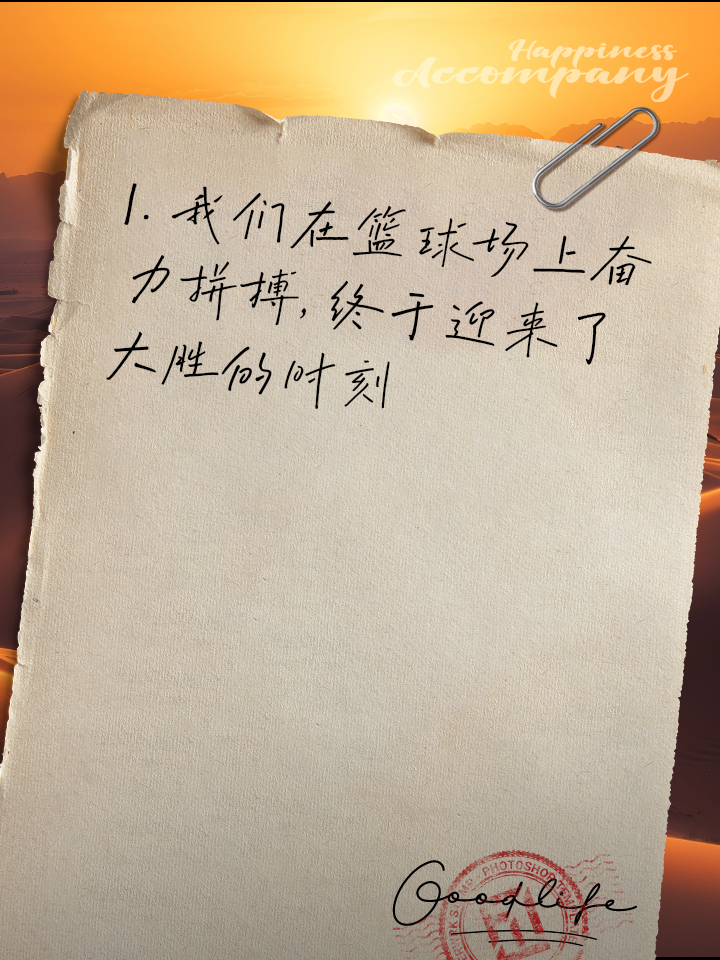 Happiness
Accompany
1. 我们在篮球场上奋
力拼搏,终于迎来了
大胜的时刻
PHOTOSHOP
Goodlife